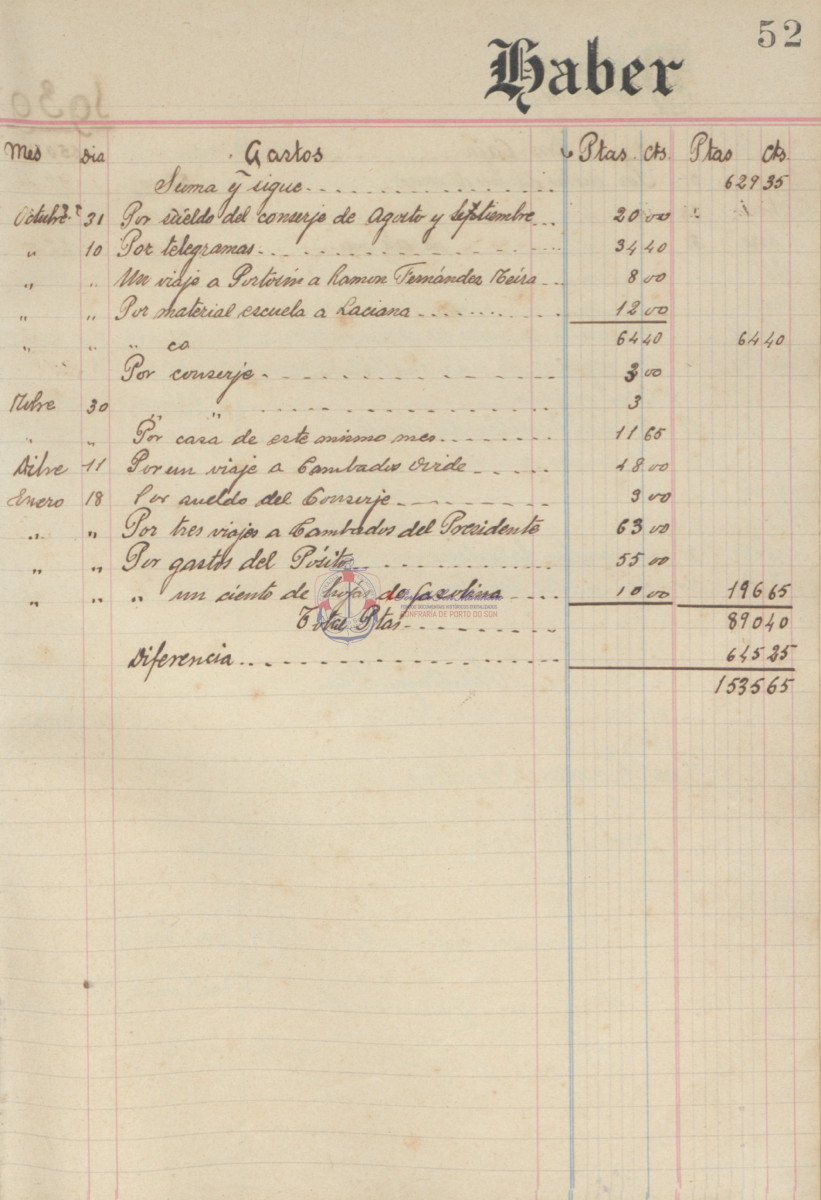 52
Haber
1930
Mes Dia Gastos Ptas Cts. Ptas Cts.
Suma y sigue 629 35
Octubre 31 Por sueldo del conserje de Agosto y Septiembre 20 00
" 10 Por telegramas 34 40
" " Un viaje a Portosín a Ramon Fernández Neira 8 00
" " Por material escuela a Laciana 12 00
" " " ca 64 40 64 40
Por conserje 3 00
Nobre 30 " " 3
" " Por casa de este mismo mes 11 65
Dibre 11 Por un viaje a Cambados 48 00
Enero 18 Por sueldo del Conserje 3 00
" " Por tres viajes a Cambados del Presidente 63 00
" " Por gastos del Pósito 55 00
" " " un ciento de hojas de Gasolina 10 00 196 65
FONDOS DOCUMENTAIS HISTÓRICOS DIXITALIZADOS
CONFRARÍA DE PORTO DO SON
Total Ptas 890 40
Diferencia 645 25
1535 65